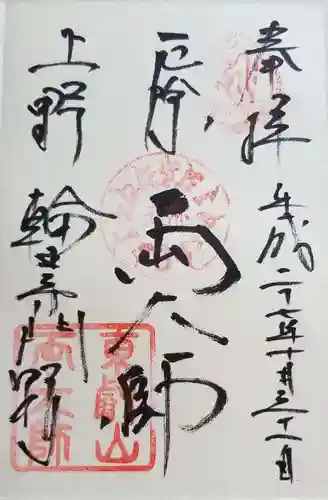 奉拝
平成二十七年十月三十一日
両大師
上野
輪王寺門跡
東叡山
両大師